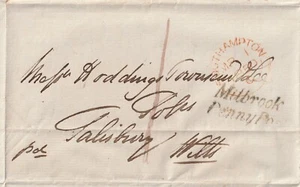 SOUTHAMPTON
Messrs Hodding Townsend & Co
Milbrook
Penny Po
Salisbury
pd Wilts